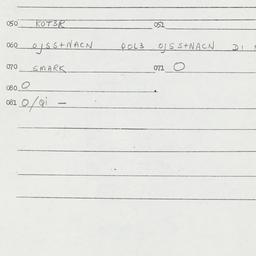 050 KOTSR 051
060 OJSS+NACN POL3 OJSS+NACN DI
070 SMARK 071 O
080 O
081 O/Qi —